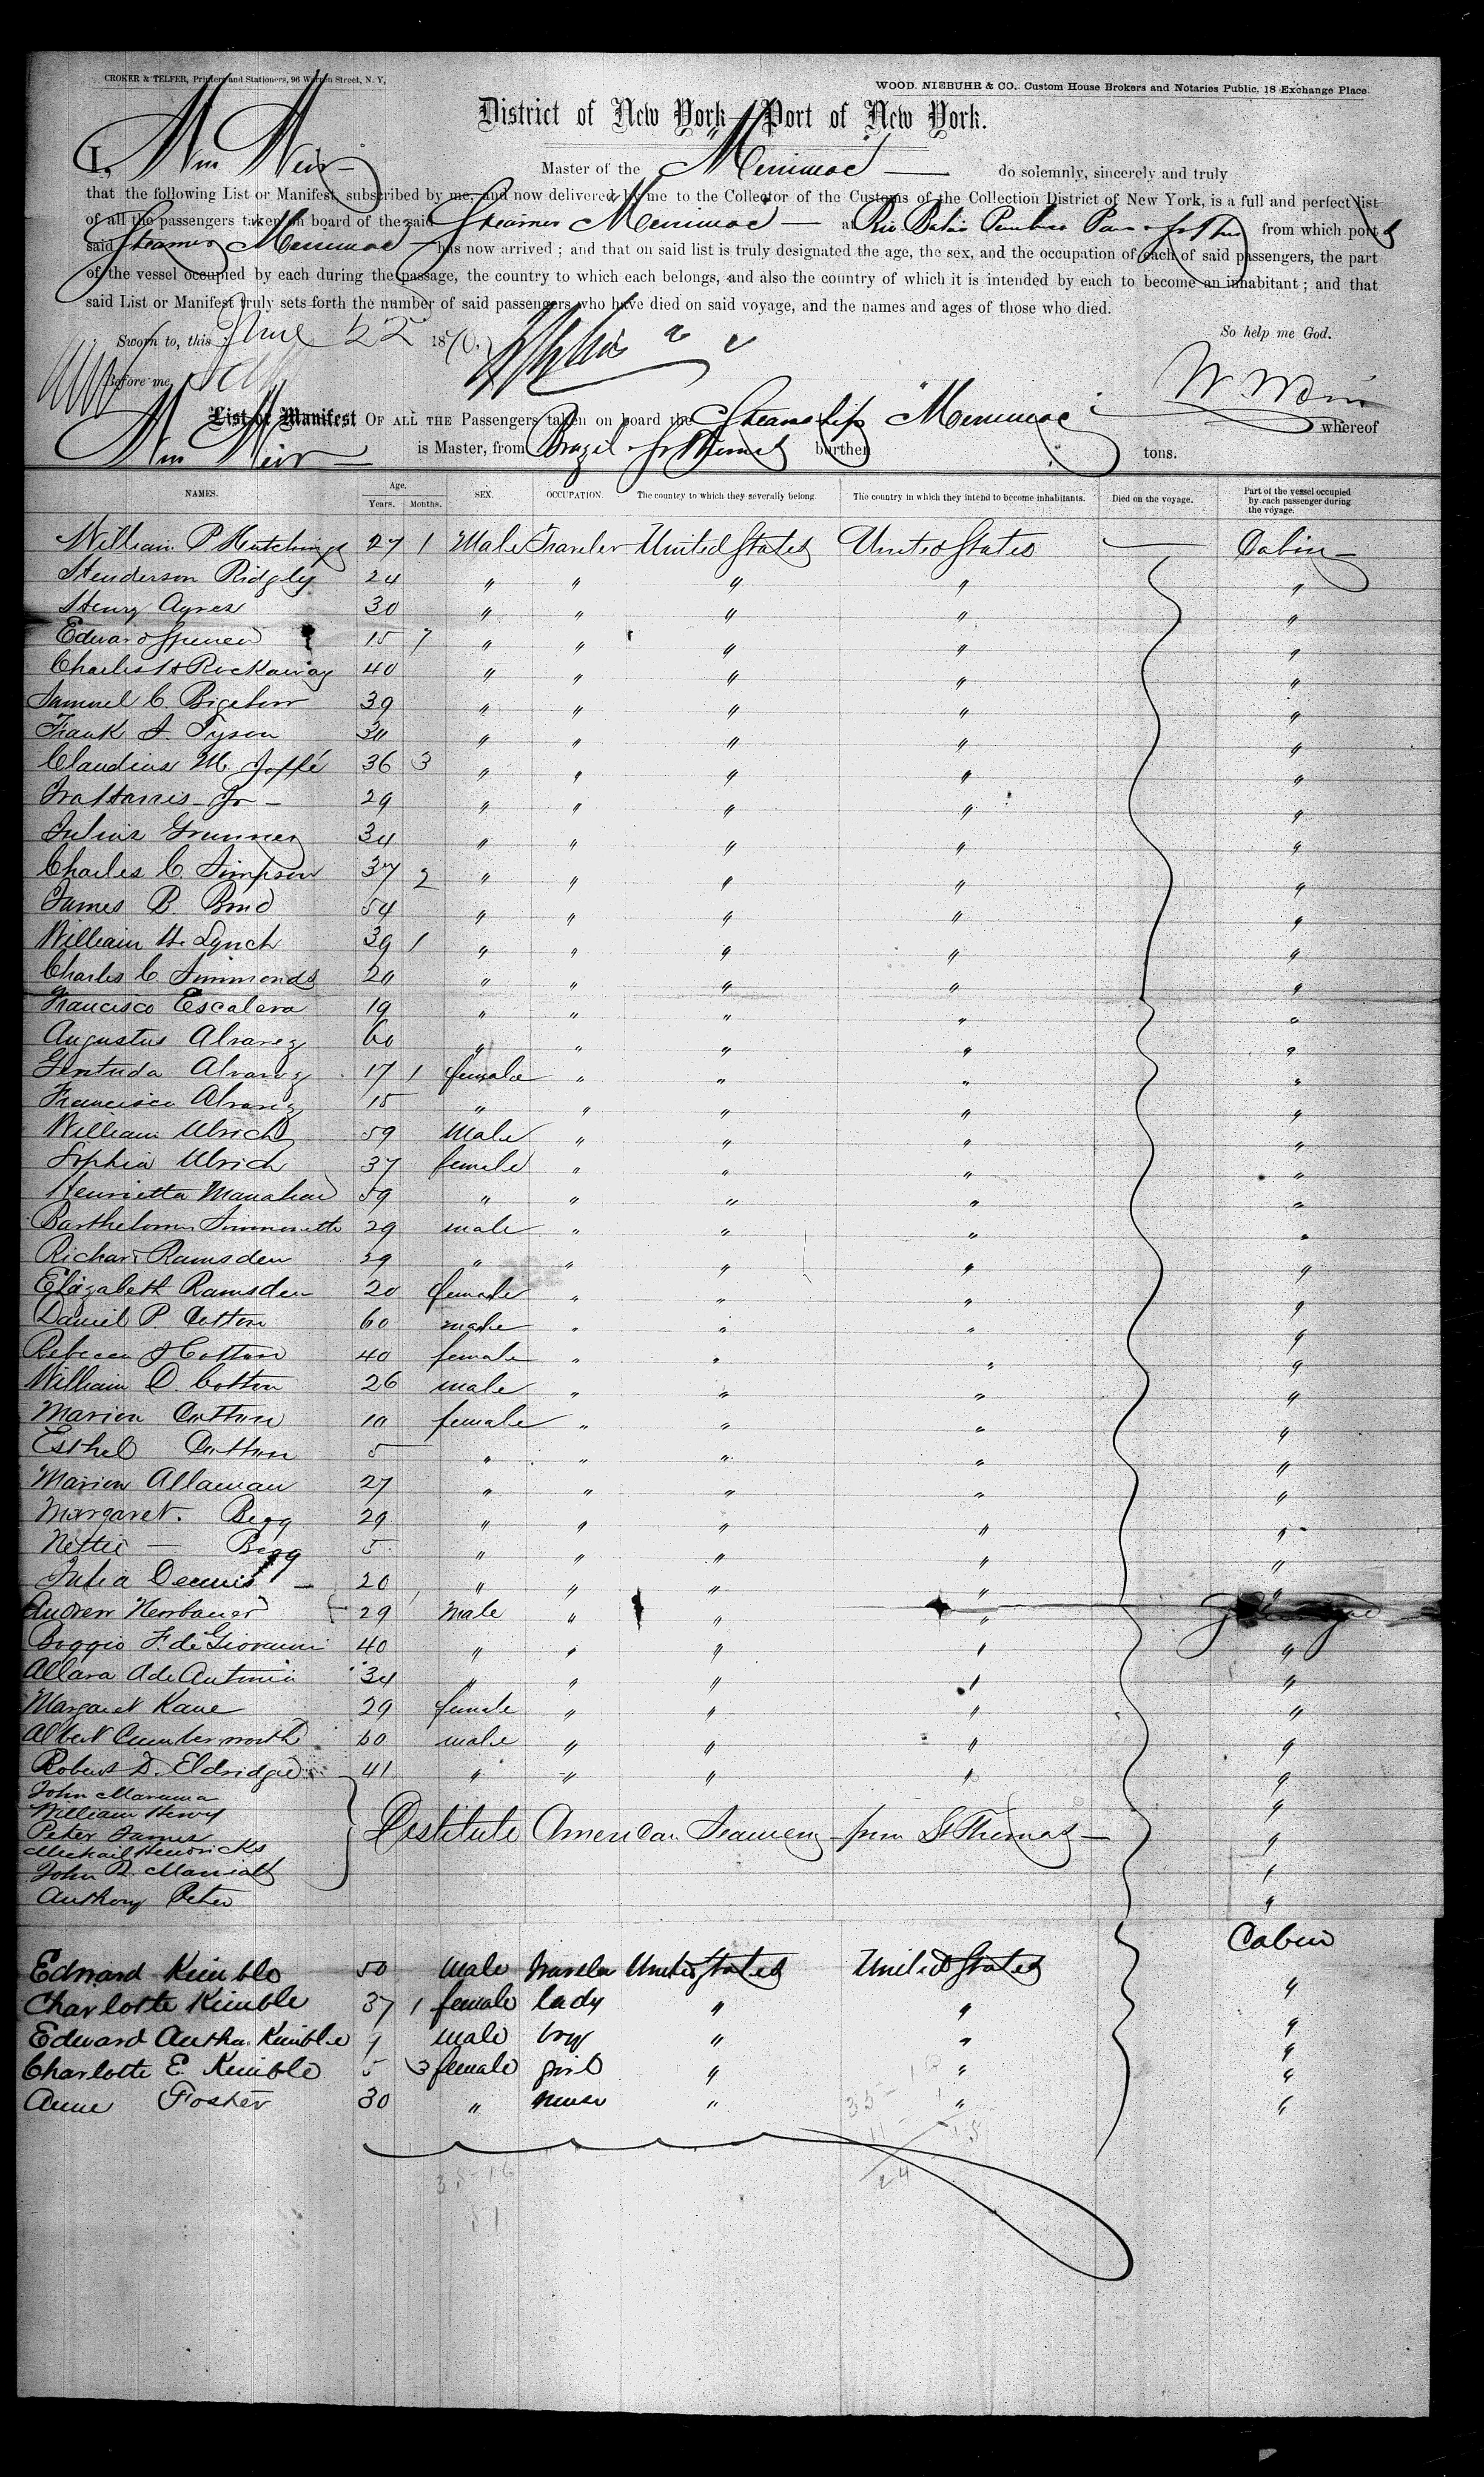 CROKER & TELFER, Printers and Stationers, 96 Warren Street, N. Y.
WOOD, NIEBUHR & CO., Custom House Brokers and Notaries Public, 18 Exchange Place
District of New York—Port of New York.
I, Wm Weir Master of the Merrimac do solemnly, sincerely and truly
that the following List or Manifest, subscribed by me, and now delivered by me to the Collector of the Customs of the Collection District of New York, is a full and perfect list
of all the passengers taken on board of the said Steamer Merrimac at Rio Bahia from which port
said Steamer Merrimac has now arrived ; and that on said list is truly designated the age, the sex, and the occupation of each of said passengers, the part
of the vessel occupied by each during the passage, the country to which each belongs, and also the country of which it is intended by each to become an inhabitant ; and that
said List or Manifest truly sets forth the number of said passengers who have died on said voyage, and the names and ages of those who died.
Sworn to, this June 22 1870, So help me God.
Before me W. Weir
List or Manifest OF ALL THE Passengers taken on board the Steamship Merrimac whereof
Wm Weir is Master, from Brazil & St Thomas burthen tons.
NAMES. Age. Years. Months. SEX. OCCUPATION. The country to which they severally belong. The country in which they intend to become inhabitants. Died on the voyage. Part of the vessel occupied by each passenger during the voyage.
William P. Hutchings 27 1 Male Traveler United States United States — Cabin
Henderson Ridgly 24 " " " " "
Henry Ayres 30 " " " " "
Edward Spencer 15 7 " " " " "
Charles H Rockaway 40 " " " " "
Samuel C. Bigelow 39 " " " " "
Frank J. Tyson 30 " " " " "
Claudius M. Joffé 36 3 " " " " "
Ira Harris Jr 29 " " " " "
Julius 34 " " " " "
Charles C. Simpson 37 2 " " " " "
James B. Bond 54 " " " " "
William H. Lynch 39 1 " " " " "
Charles C. Simmonds 20 " " " " "
Francisco Escalera 19 " " " " "
Augustus Alvarez 60 " " " " "
Gertruda Alvarez 17 1 female " " " "
Francisca Alvarez 15 " " " " "
William Ulrich 59 Male " " " "
Sophia Ulrich 37 female " " " "
Henrietta Manahan 59 " " " " "
29 male " " " "
Richard Ramsden 29 " " " " "
Elizabeth Ramsden 20 female " " " "
Daniel P. Cotton 60 male " " " "
Rebecca J Cotton 40 female " " " "
William D. Cotton 26 male " " " "
Marion Cotton 10 female " " " "
Esthel Cotton 5 " " " " "
Marion Allaman 27 " " " " "
Margaret. Begg 29 " " " " "
Nettie — Begg 5 " " " " "
Julia Dennis 20 " " " " "
Andrew Newbauer 29 Male " " "
Boggio F. de Giovanni 40 " " " " "
Allara A de Antonio 34 " " " " "
Margaret Kane 29 female " " " "
Albert male " " " "
Robert D. Eldridge 41 " " " " "
John
William Henry "
Peter James Destitute American Seamen from St Thomas "
Michael Hendricks
John "
Anthony Peter "
Cabin
Edward Kimble 50 male Traveler United States United States "
Charlotte Kimble 37 1 female lady " " "
Edward Arthur Kimble 9 male boy " " "
Charlotte E. Kimble 5 3 female girl " " "
Anne Foster 30 " nurse " " "
35-16
51
24